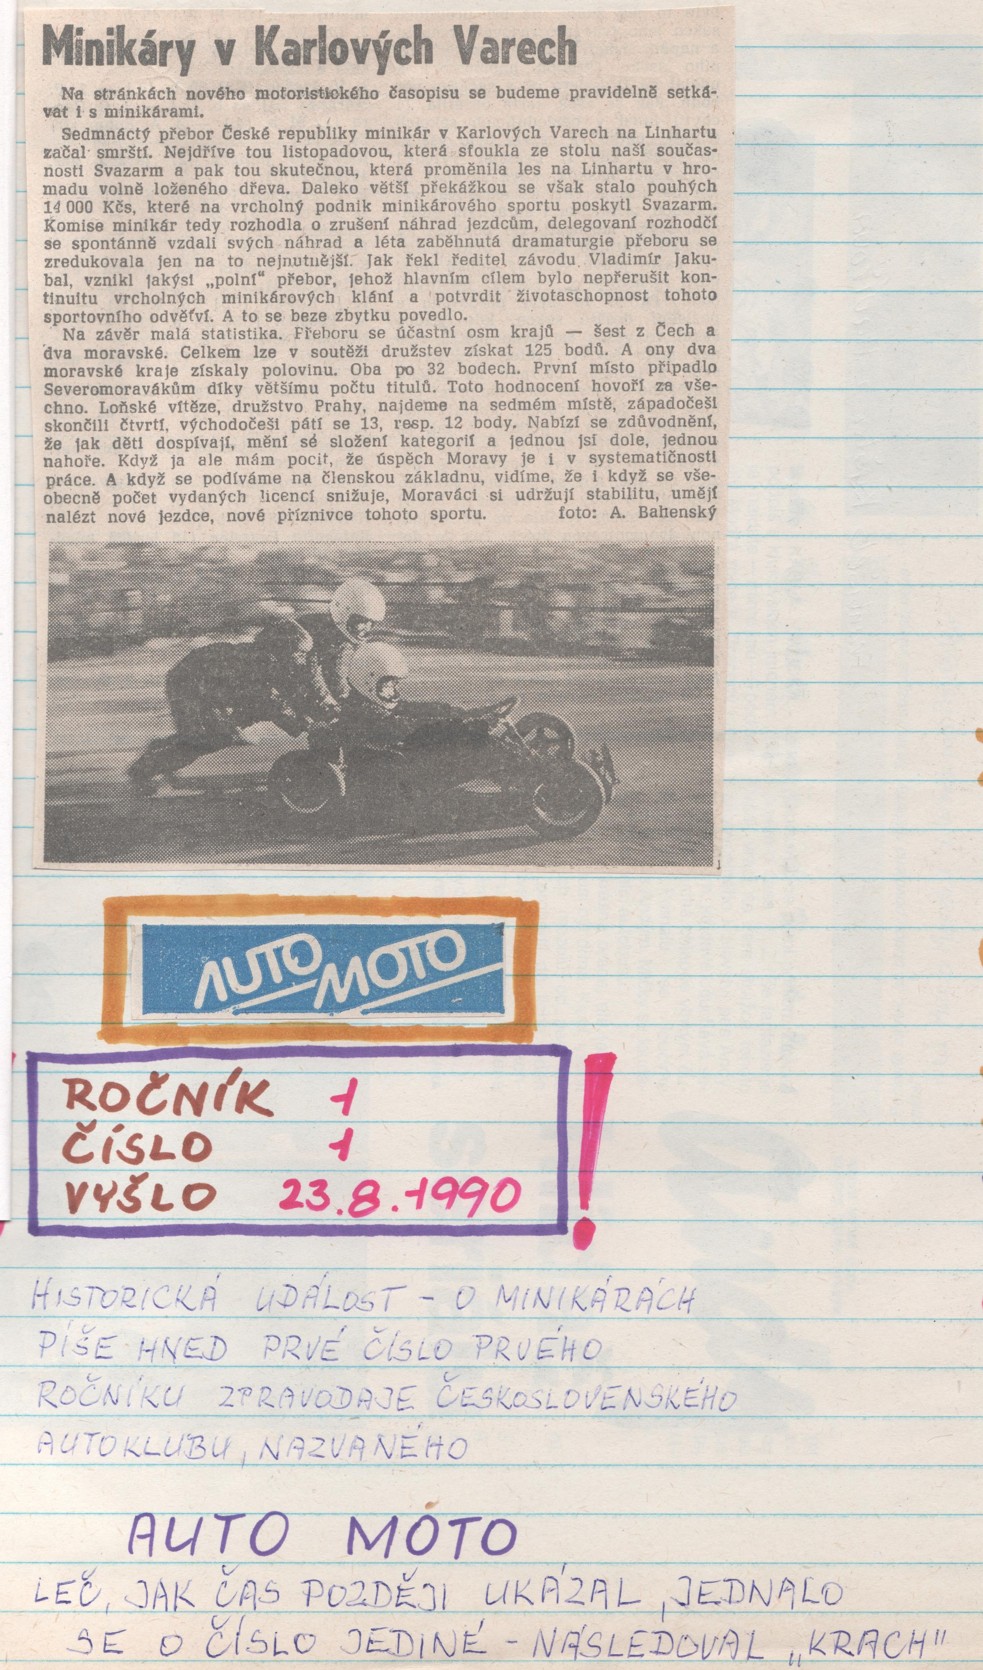 Minikáry v Karlových Varech
Na stránkách nového motoristického časopisu se budeme pravidelně setká-
vat i s minikárami.
Sedmnáctý přebor České republiky minikár v Karlových Varech na Linhartu
začal smrští. Nejdříve tou listopadovou, která sfoukla ze stolu naší součas-
nosti Svazarm a pak tou skutečnou, která proměnila les na Linhartu v hro-
madu volně loženého dřeva. Daleko větší překážkou se však stalo pouhých
14 000 Kčs, které na vrcholný podnik minikárového sportu poskytl Svazarm.
Komise minikár tedy rozhodla o zrušení náhrad jezdcům, delegovaní rozhodčí
se spontánně vzdali svých náhrad a léta zaběhnutá dramaturgie přeboru se
zredukovala jen na to nejnutnější. Jak řekl ředitel závodu Vladimír Jaku-
bal, vznikl jakýsi „polní“ přebor, jehož hlavním cílem bylo nepřerušit kon-
tinuitu vrcholných minikárových klání a potvrdit životaschopnost tohoto
sportovního odvětví. A to se beze zbytku povedlo.
Na závěr malá statistika. Přeboru se účastní osm krajů — šest z Čech a
dva moravské. Celkem lze v soutěži družstev získat 125 bodů. A ony dva
moravské kraje získaly polovinu. Oba po 32 bodech. První místo připadlo
Severomoravákům díky většímu počtu titulů. Toto hodnocení hovoří za vše-
chno. Loňské vítěze, družstvo Prahy, najdeme na sedmém místě, západočeši
skončili čtvrtí, východočeši pátí se 13, resp. 12 body. Nabízí se zdůvodnění,
že jak děti dospívají, mění se složení kategorií a jednou jsi dole, jednou
nahoře. Když ja ale mám pocit, že úspěch Moravy je i v systematičnosti
práce. A když se podíváme na členskou základnu, vidíme, že i když se vše-
obecně počet vydaných licencí snižuje, Moraváci si udržují stabilitu, umějí
nalézt nové jezdce, nové příznivce tohoto sportu. foto: A. Bahenský
AUTO MOTO
ROČNÍK 1
ČÍSLO 1
VYŠLO 23.8.1990 !
HISTORICKÁ UDÁLOST – O MINIKÁRÁCH
PÍŠE HNED PRVÉ ČÍSLO PRVÉHO
ROČNÍKU ZPRAVODAJE ČESKOSLOVENSKÉHO
AUTOKLUBU, NAZVANÉHO
AUTO MOTO
LEČ, JAK ČAS POZDĚJI UKÁZAL, JEDNALO
SE O ČÍSLO JEDINÉ – NÁSLEDOVAL „KRACH"